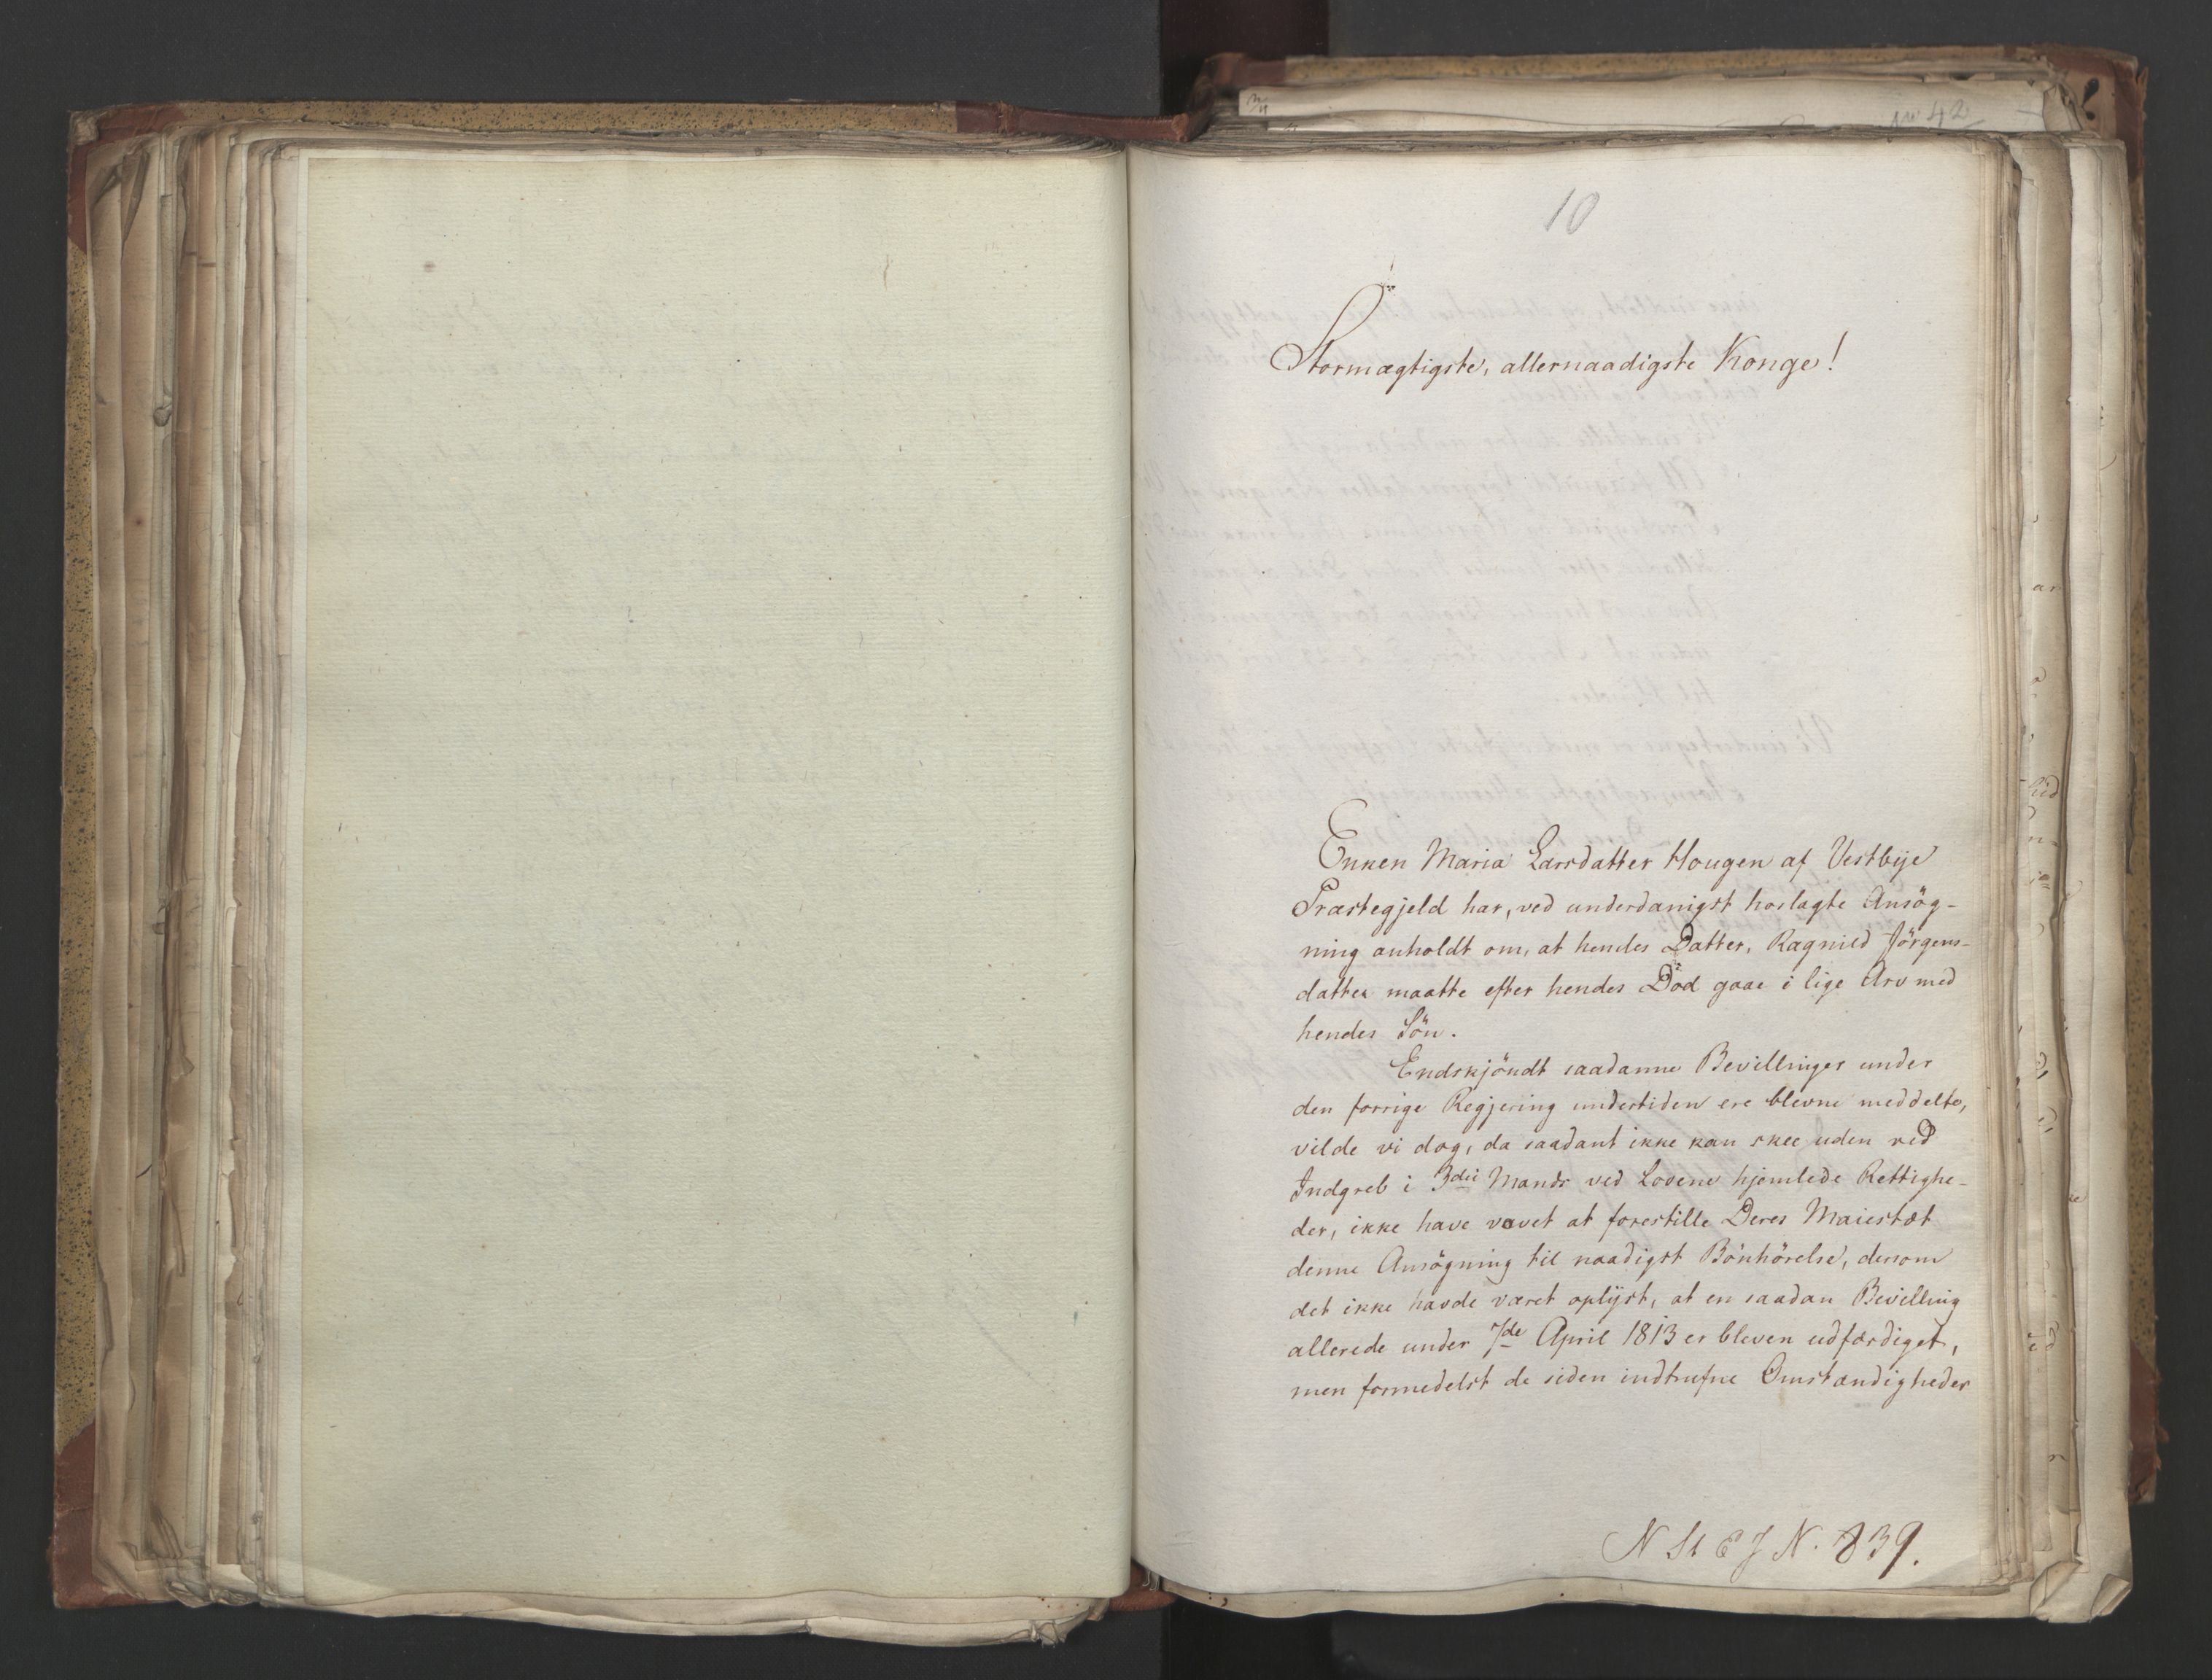 No 42
10
Stormægtigste, allernaadigste Konge!
Enken Maria Larsdatter Hougen af Vestbye
Præstegjeld har, ved underdanigst hoslagte Ansög-
ning anholdt om, at hendes Datter, Ragnild Jörgens-
datter maatte efter hendes Död gaae i lige Arv med
hendes Sön.
Endskjöndt saadanne Bevillinger under
den forrige Regjering undertiden ere blevne meddelte,
vilde vi dog, da saadant ikke kan skee uden ved
Indgreb i 3die Mands ved Lovene hjemlede Rettighe-
der, ikke have vovet at forestille Deres Maiestæt
denne Ansögning til naadigst Bönhörelse, dersom
det ikke havde været oplyst, at en saadan Bevilling
allerede under 7de April 1813 er bleven udfærdiget,
men formedelst de siden indtrufne Omstændigheder
N St E J N. 839.